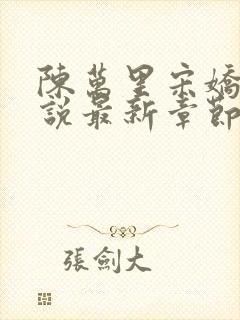 陳萬里宋嬌
說最新章節
張劍大